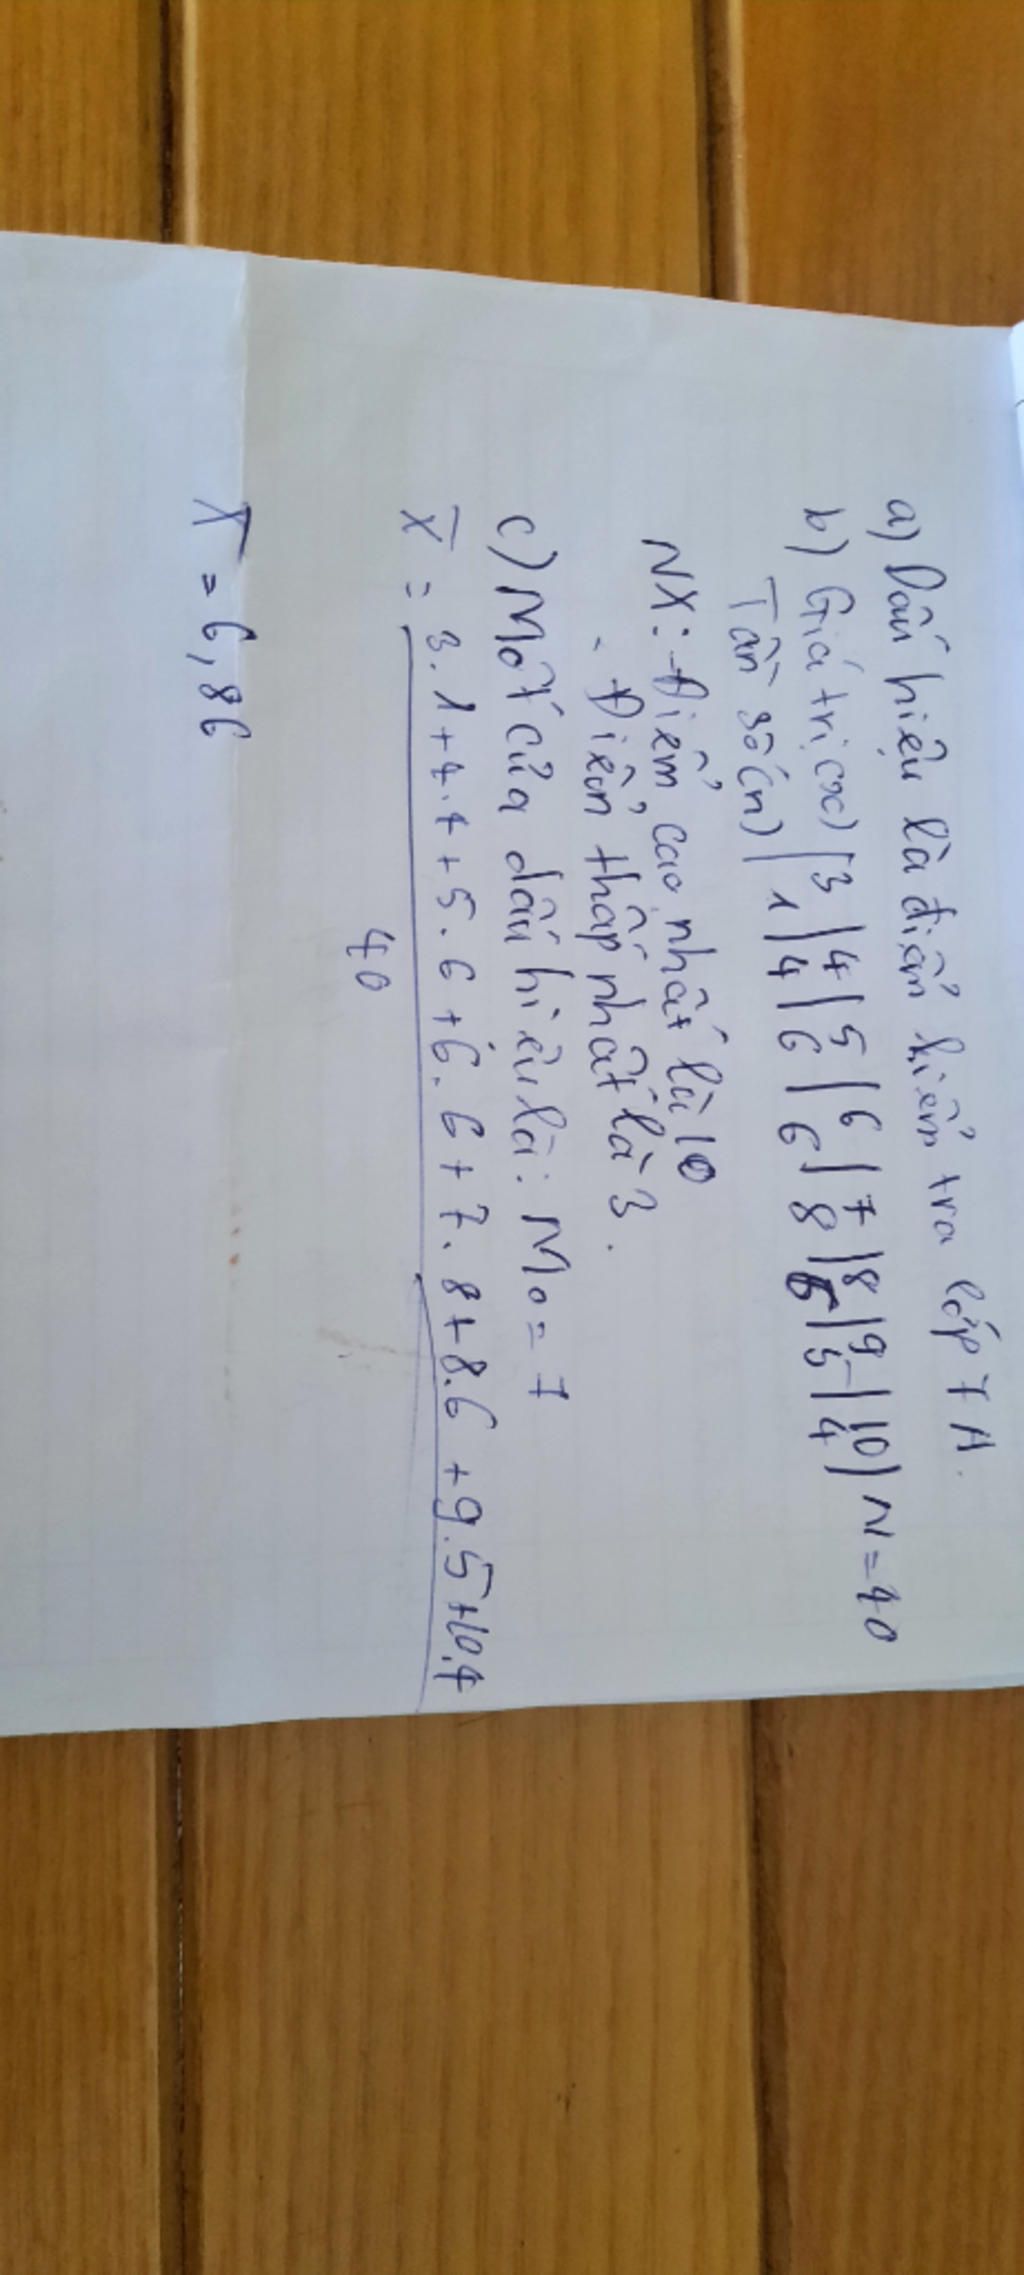 a) Dấu hiệu là điểm kiểm tra lớp 7A.
b) Giá trị (x) | 3 | 4 | 5 | 6 | 7 | 8 | 9 | 10 | N = 40
Tần số (n) | 1 | 4 | 6 | 6 | 8 | 6 | 5 | 4
NX: Điểm cao nhất là 10
. Điểm thấp nhất là 3.
c) Mốt của dấu hiệu là: Mo = 7
X̅ = 3.1+4.4+5.6+6.6+7.8+8.6+9.5+10.4
40
X̅ = 6,86